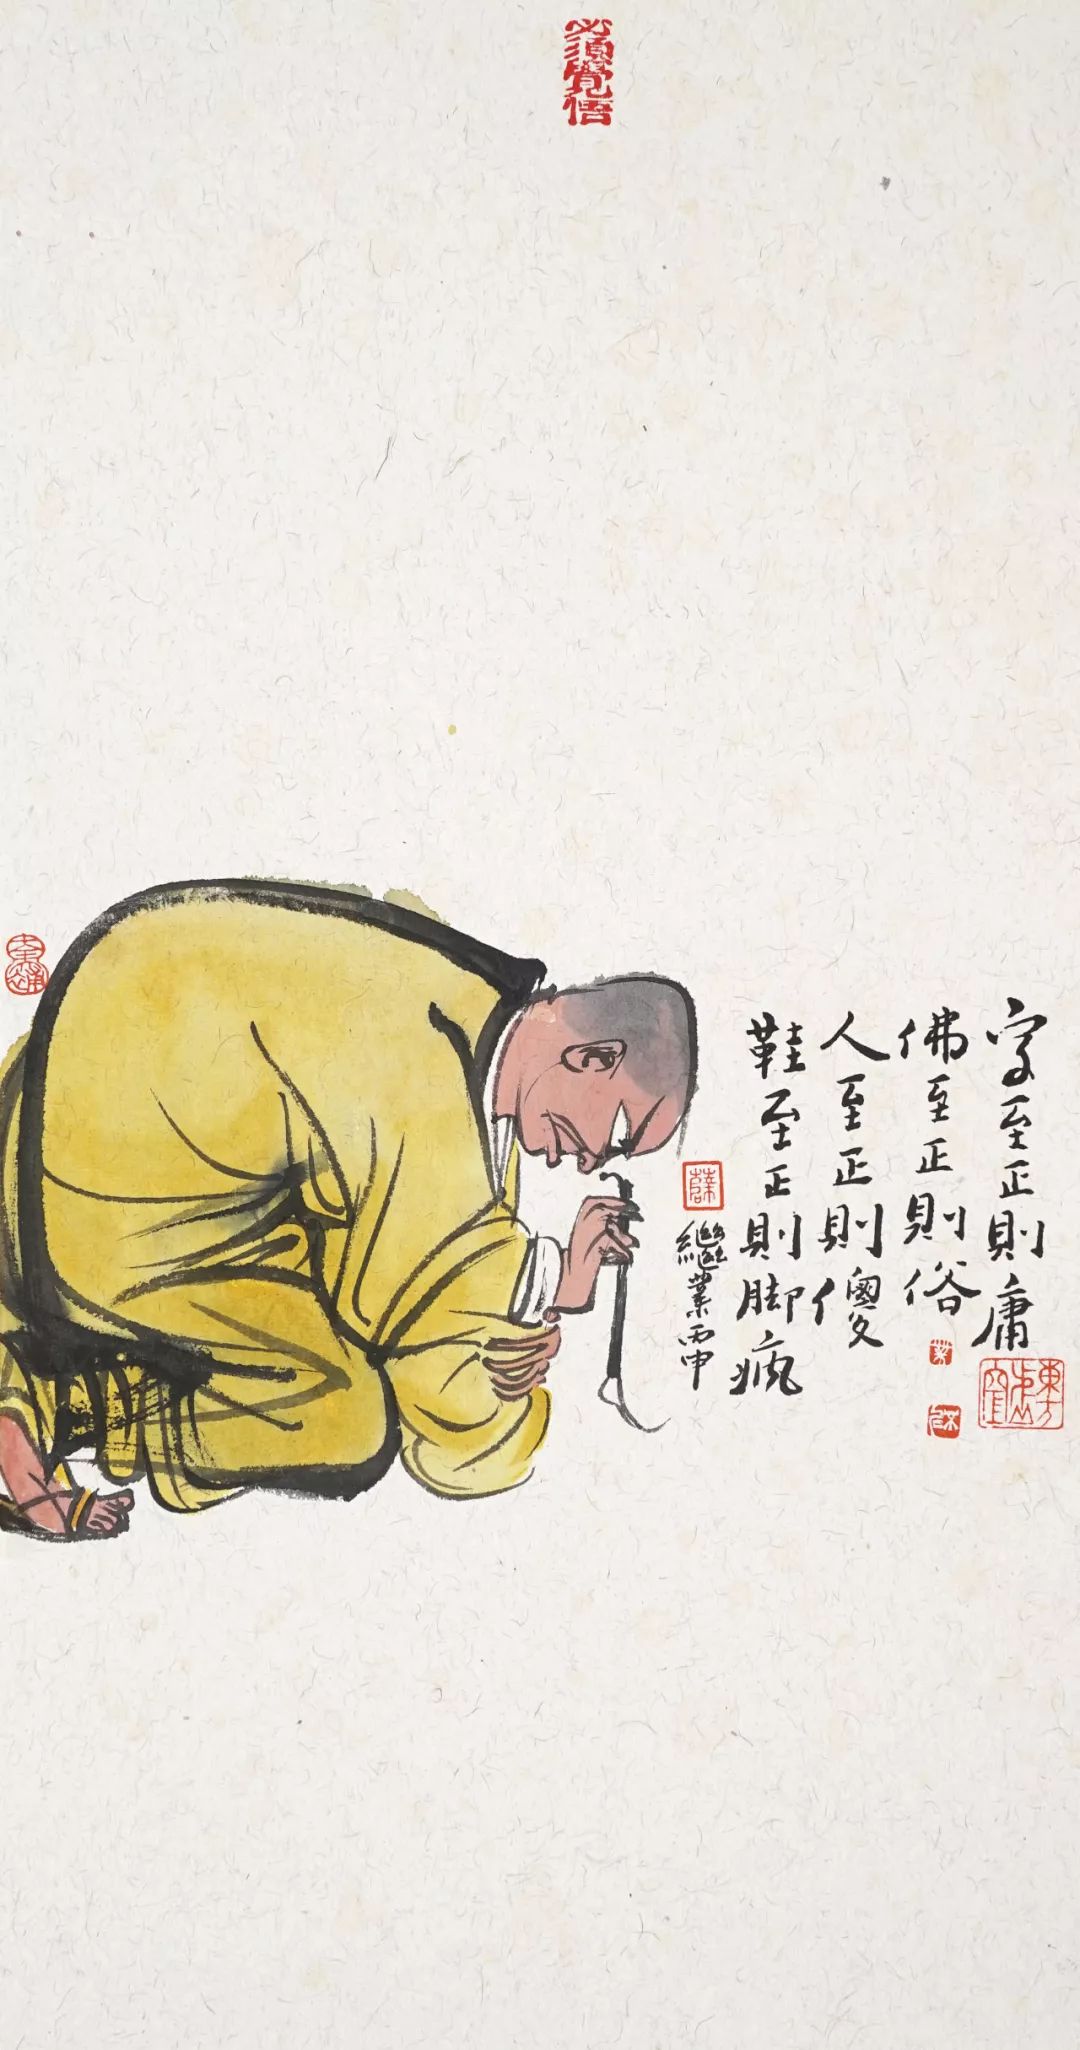 必須覺悟
字至正則庸
佛至正則俗
人至正則傻
鞋至正則脚疯
薛
繼業丙申